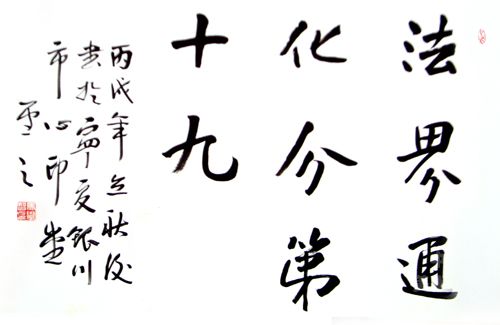 法界通
化分第
十九
丙戌年立秋後
书於宁夏银川
市心印堂